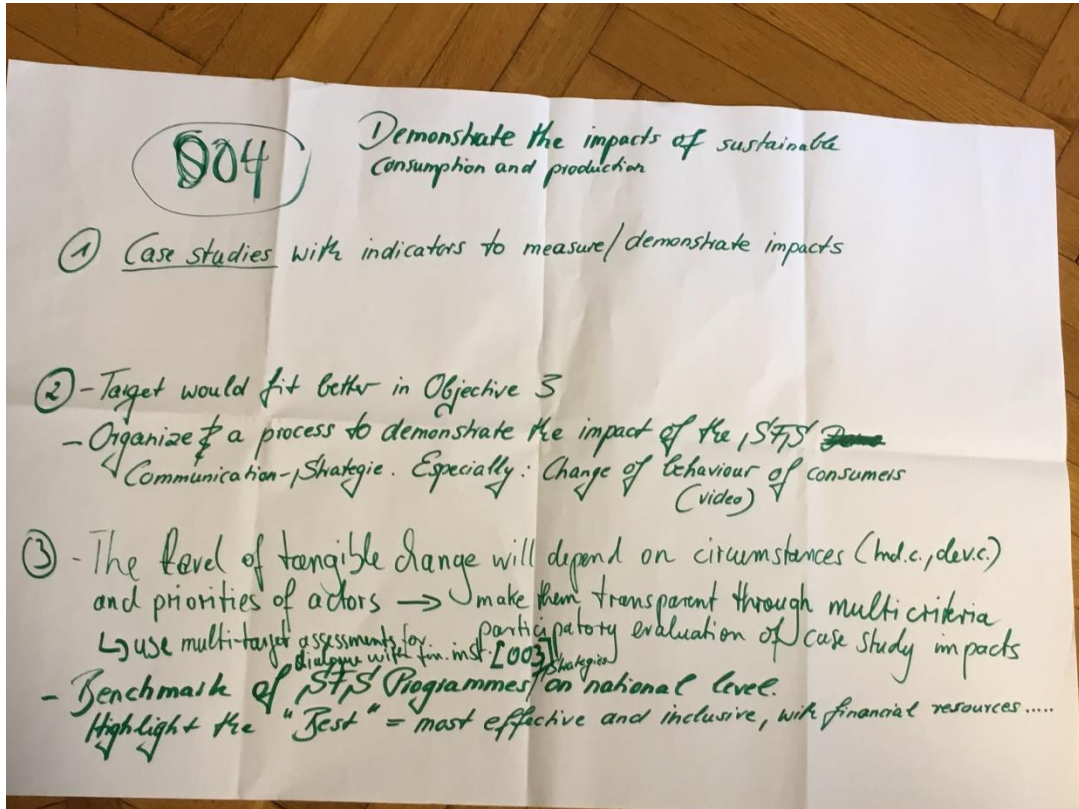 004
Demonstrate the impacts of sustainable
consumption and production
① Case studies with indicators to measure/demonstrate impacts
② - Target would fit better in Objective 3
- Organize a process to demonstrate the impact of the SFS
Communication-Strategie. Especially: Change of behaviour of consumers
(video)
③ - The level of tangible change will depend on circumstances (ind.c., dev.c.)
and priorities of actors → make them transparent through multicriteria
participatory evaluation of case study impacts
↳ use multi-target assessments for
dialogue with fin. inst. [003]
- Benchmark of SFS Programmes/strategies on national level.
Highlight the "Best" = most effective and inclusive, with financial resources.....